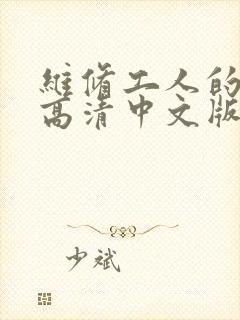 維脩工人的
高清中文版
少斌